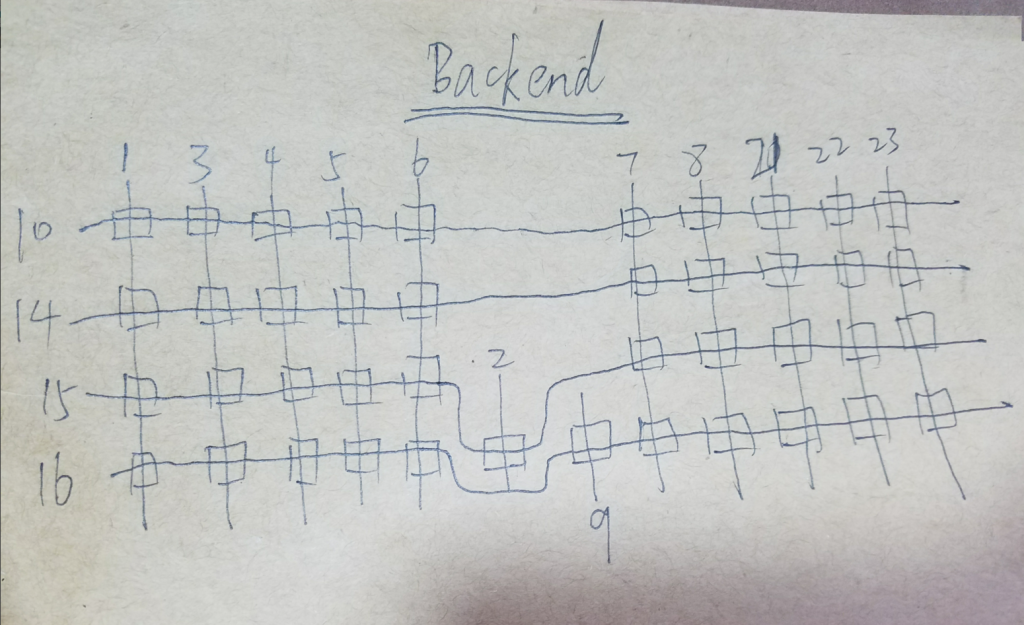 Backend
1 3 4 5 6 7 8 21 22 23
10
14
2
15
16
9